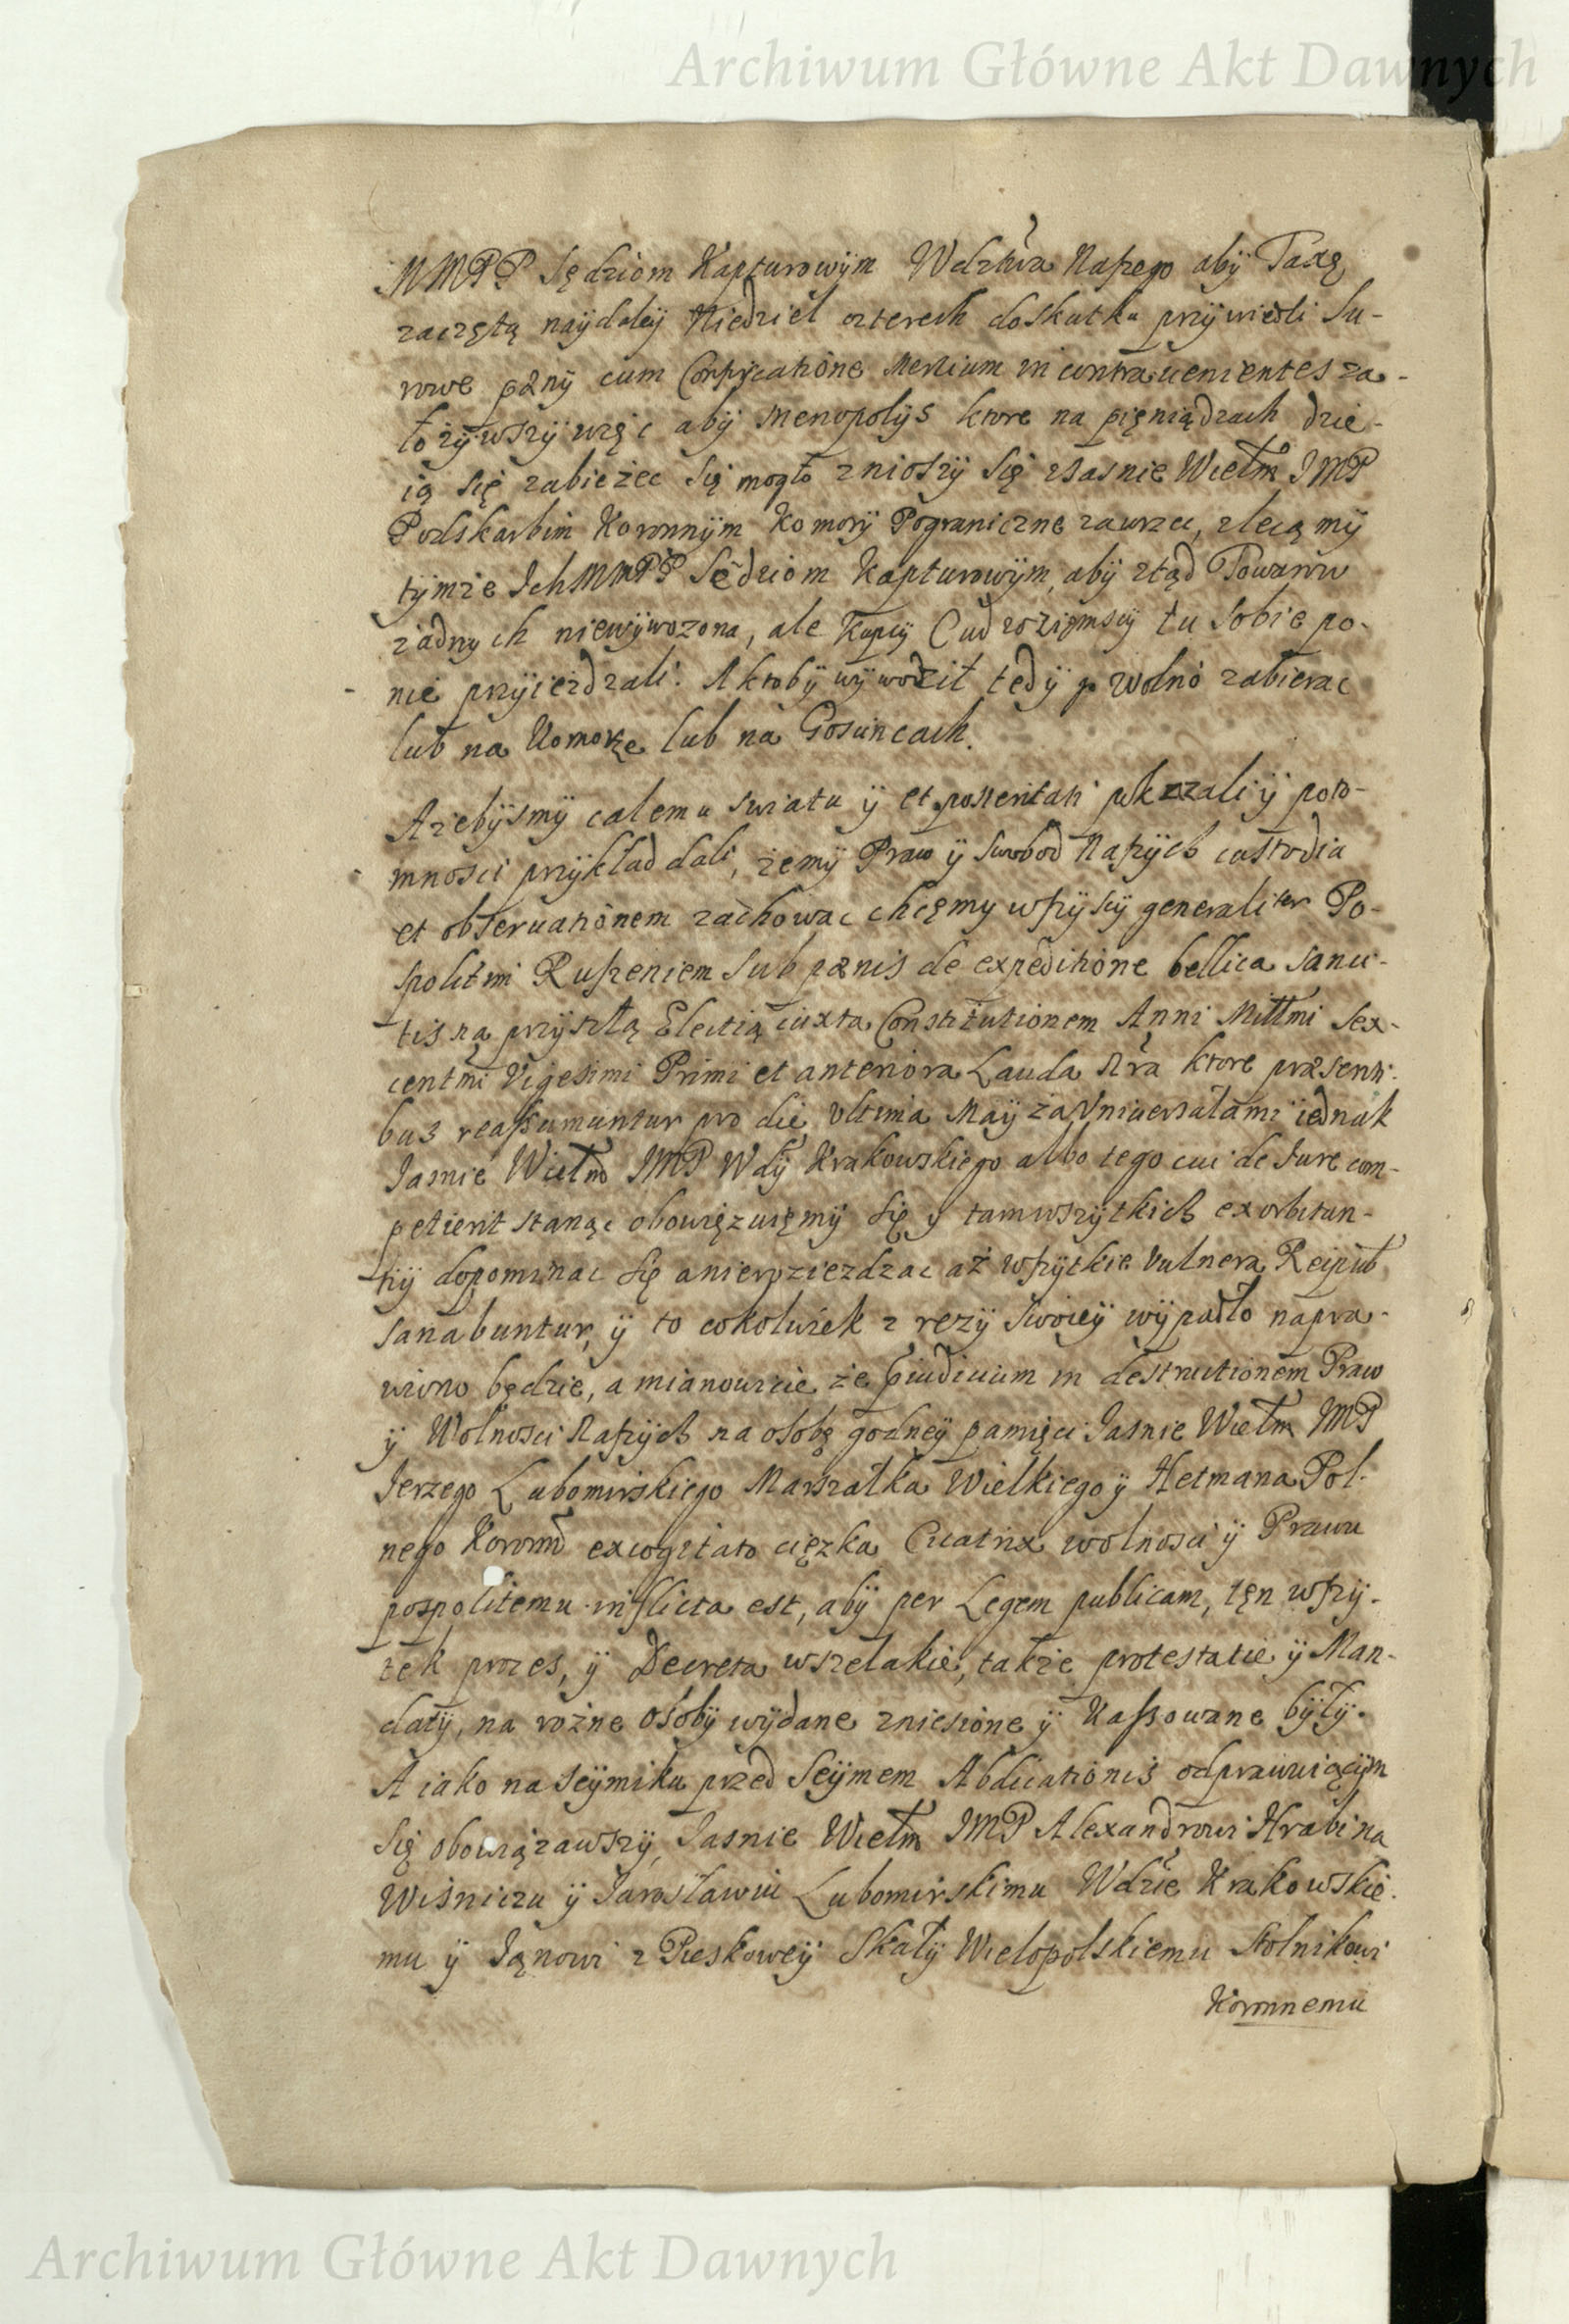 Archiwum Główne Akt Dawnych
MMPP Sędziom Kapturowÿm Wdztwa Naszego abÿ Taxę
zaczętą naÿdaleÿ Niedziel czterech do skutku przÿwiedli su-
rowe pænÿ cum Confiscatione Mertium in contravenientes za-
łożÿwszÿ więc abÿ menopolÿs ktore na pięniądzach dzie-
ią się zabieżec się mogło zniosszÿ się zJasnie Wielm JMP
Podskarbim Koronnÿm Komorÿ Pograniczne zawrzec, zlecą mÿ
tÿmże Ich MMPP Sędziom Kapturowÿm, abÿ ztąd Towarow
żadnych niewÿwozona, ale Kupcÿ Cudzoziemscÿ tu sobie po-
nie przÿieżdzali. A ktobÿ wÿwoził tedÿ go wolno zabierac
lub na Komorze lub na Gosuncach.
Azebÿsmÿ całemu swiatu ÿ et posteritati pokazali ÿ poto-
mnosci przÿkład dali, że mÿ Praw ÿ swobod Naszÿch custodia
et obseruationem zachowac chcęmy wszÿscÿ generaliter Po-
spolitm Ruszeniem sub pænis de expeditione bellica sanci-
tis na przÿszłą Electią iuxta Constitutionem Anni Millmi sex-
centmi Vigesimi Primi et anteriora Lauda Nra ktore præsenti-
bus reassumuntur pro die Vltima Maÿ za Vniuersałami iednak
Jasnie Wielmo JMP Wdÿ Krakowskiego albo tego cui de Jure com-
petierit stanąc obowięzuięmÿ się y tam wszÿtkich exorbitan-
tiÿ dopominac się a nierozieżdzac aż wszÿtkie Vulnera Reipub
sanabuntur, ÿ to cokolwiek z rezÿ swoieÿ wÿpadło napra-
wiono będzie, a mianowicie że Iudicium in destructionem Praw
ÿ Wolnosci Naszÿch na osobę godneÿ pamięci Jasnie Wielm JMP
Jerzego Lubomirskiego Marszałka Wielkiego ÿ Hetmana Pol-
nego Koronno excogitato cięzka Cicatrix wolnosci ÿ Prawu
pospolitemu inflicta est, abÿ per Legem publicam, tęn wszÿ-
tek proces, ÿ Decreta wszelakie, także protestatie ÿ Man-
datÿ, na rożne osobÿ wÿdane zniesione ÿ Kassowane bÿłÿ.
A iako na Seÿmiku przed Seÿmem Abdicationis odprawuiącÿm
się obowiązawszÿ, Jasnie Wielm JMP Alexandrowi Hrabi na
Wiśniczu ÿ Jarosławiu Lubomirskimu Wdzie Krakowskie-
mu ÿ Janowi z Pieskoweÿ Skałÿ Wielopolskiemu Stolnikowi
Koronnemu
Archiwum Główne Akt Dawnych